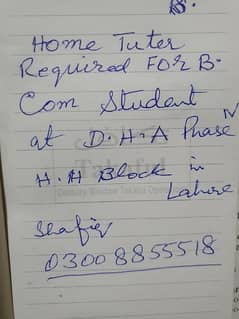 Home Tuter
Required FOR B.
Com Student
at D.H.A Phase IV
H.H Block in
Lahore
Shafiq
03008855518